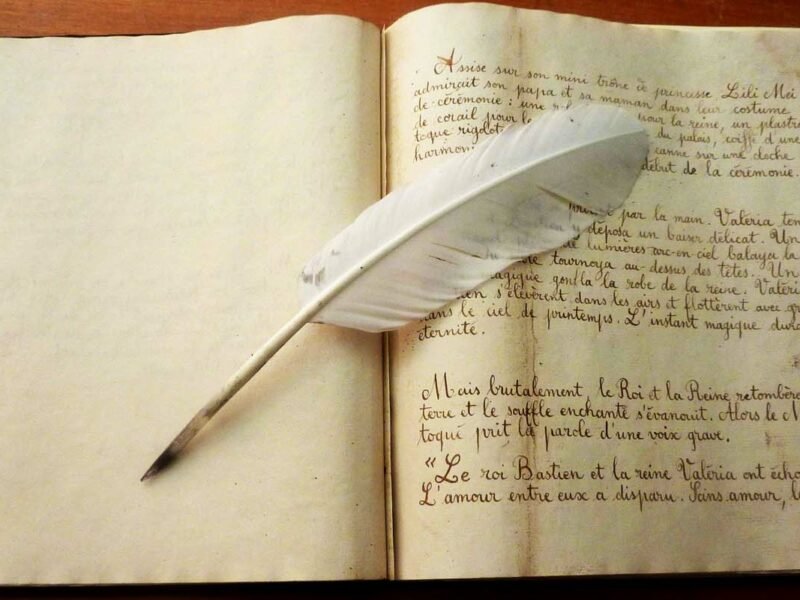 Assise sur son mini trône ce princesse Lili Mei
admirait son papa et sa maman dans leur costume
de cérémonie : une
de corail pour le pour la reine, un plastro
toque rigolot du palais, coiffé d'une
harmoni canne sur une cloche
début de la cérémonie.
par la main. Valéria ten
y déposa un baiser délicat. Un
de lumières arc-en-ciel balaya la
tournoya au-dessus des têtes. Un
magique gonfla la robe de la reine. Valéri
s'élevèrent dans les airs et flottèrent avec gr
dans le ciel de printemps. L'instant magique dura
éternité.
Mais brutalement, le Roi et la Reine retombère
terre et le souffle enchanté s'évanouit. Alors le M
toqué prit la parole d'une voix grave.
"Le roi Bastien et la reine Valéria ont écho
L'amour entre eux a disparu. Sans amour, l